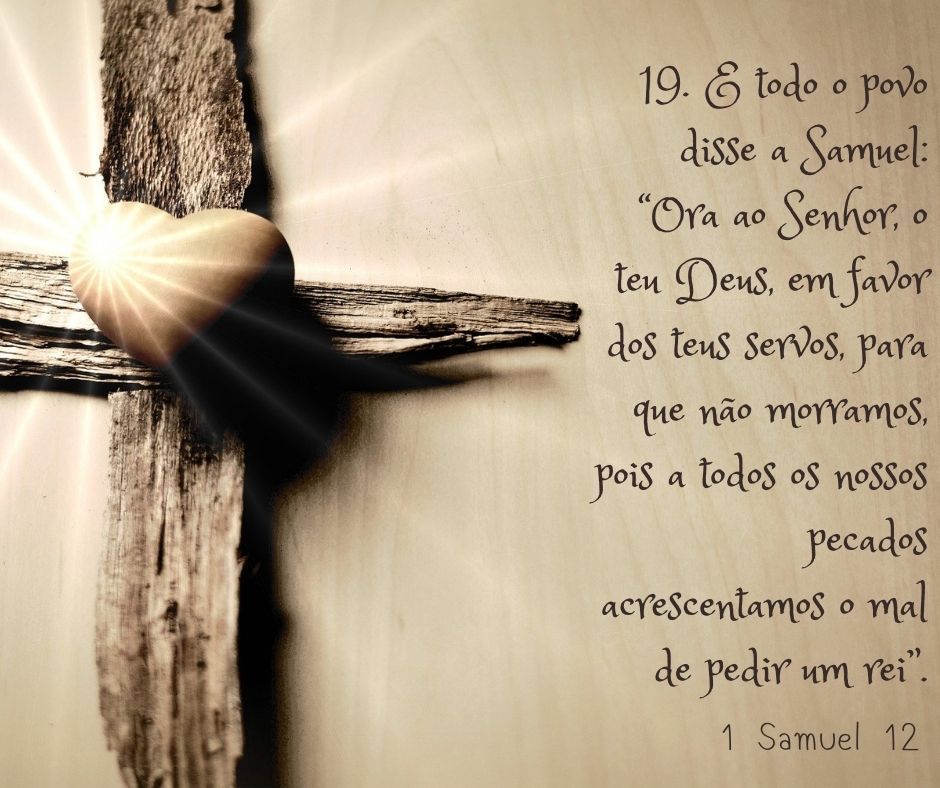 19. E todo o povo
disse a Samuel:
“Ora ao Senhor, o
teu Deus, em favor
dos teus servos, para
que não morramos,
pois a todos os nossos
pecados
acrescentamos o mal
de pedir um rei”.
1 Samuel 12